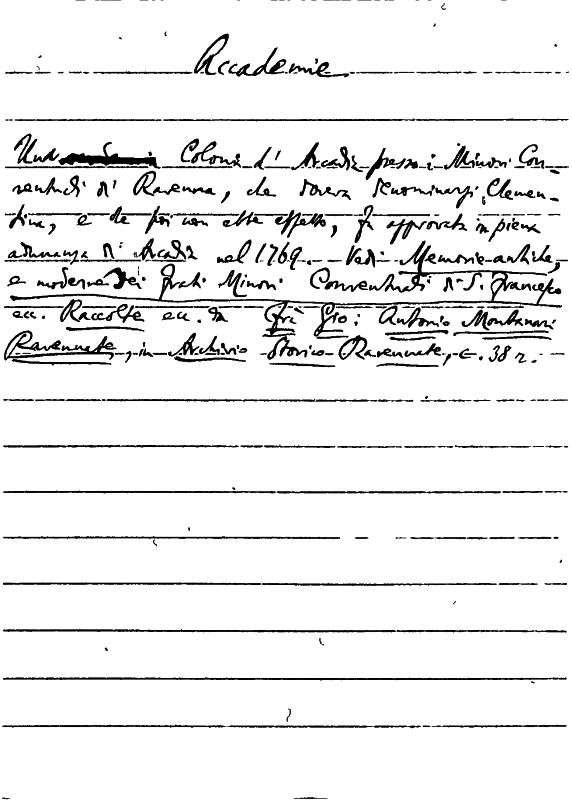 Accademie.
Una Colonia d' Arcadia presso i Minori Con-
ventuali di Ravenna, che doveva denominarsi Clemen-
tina, e che poi non ebbe effetto, fu approvata in piena
adunanza d' Arcadia nel 1769. Vedi Memorie antiche,
e moderne dei Frati Minori Conventuali di S. Francesco
ecc. Raccolte ecc. da Frà Gio: Antonio Montanari
Ravennate, in Archivio Storico Ravennate, c. 38 r.